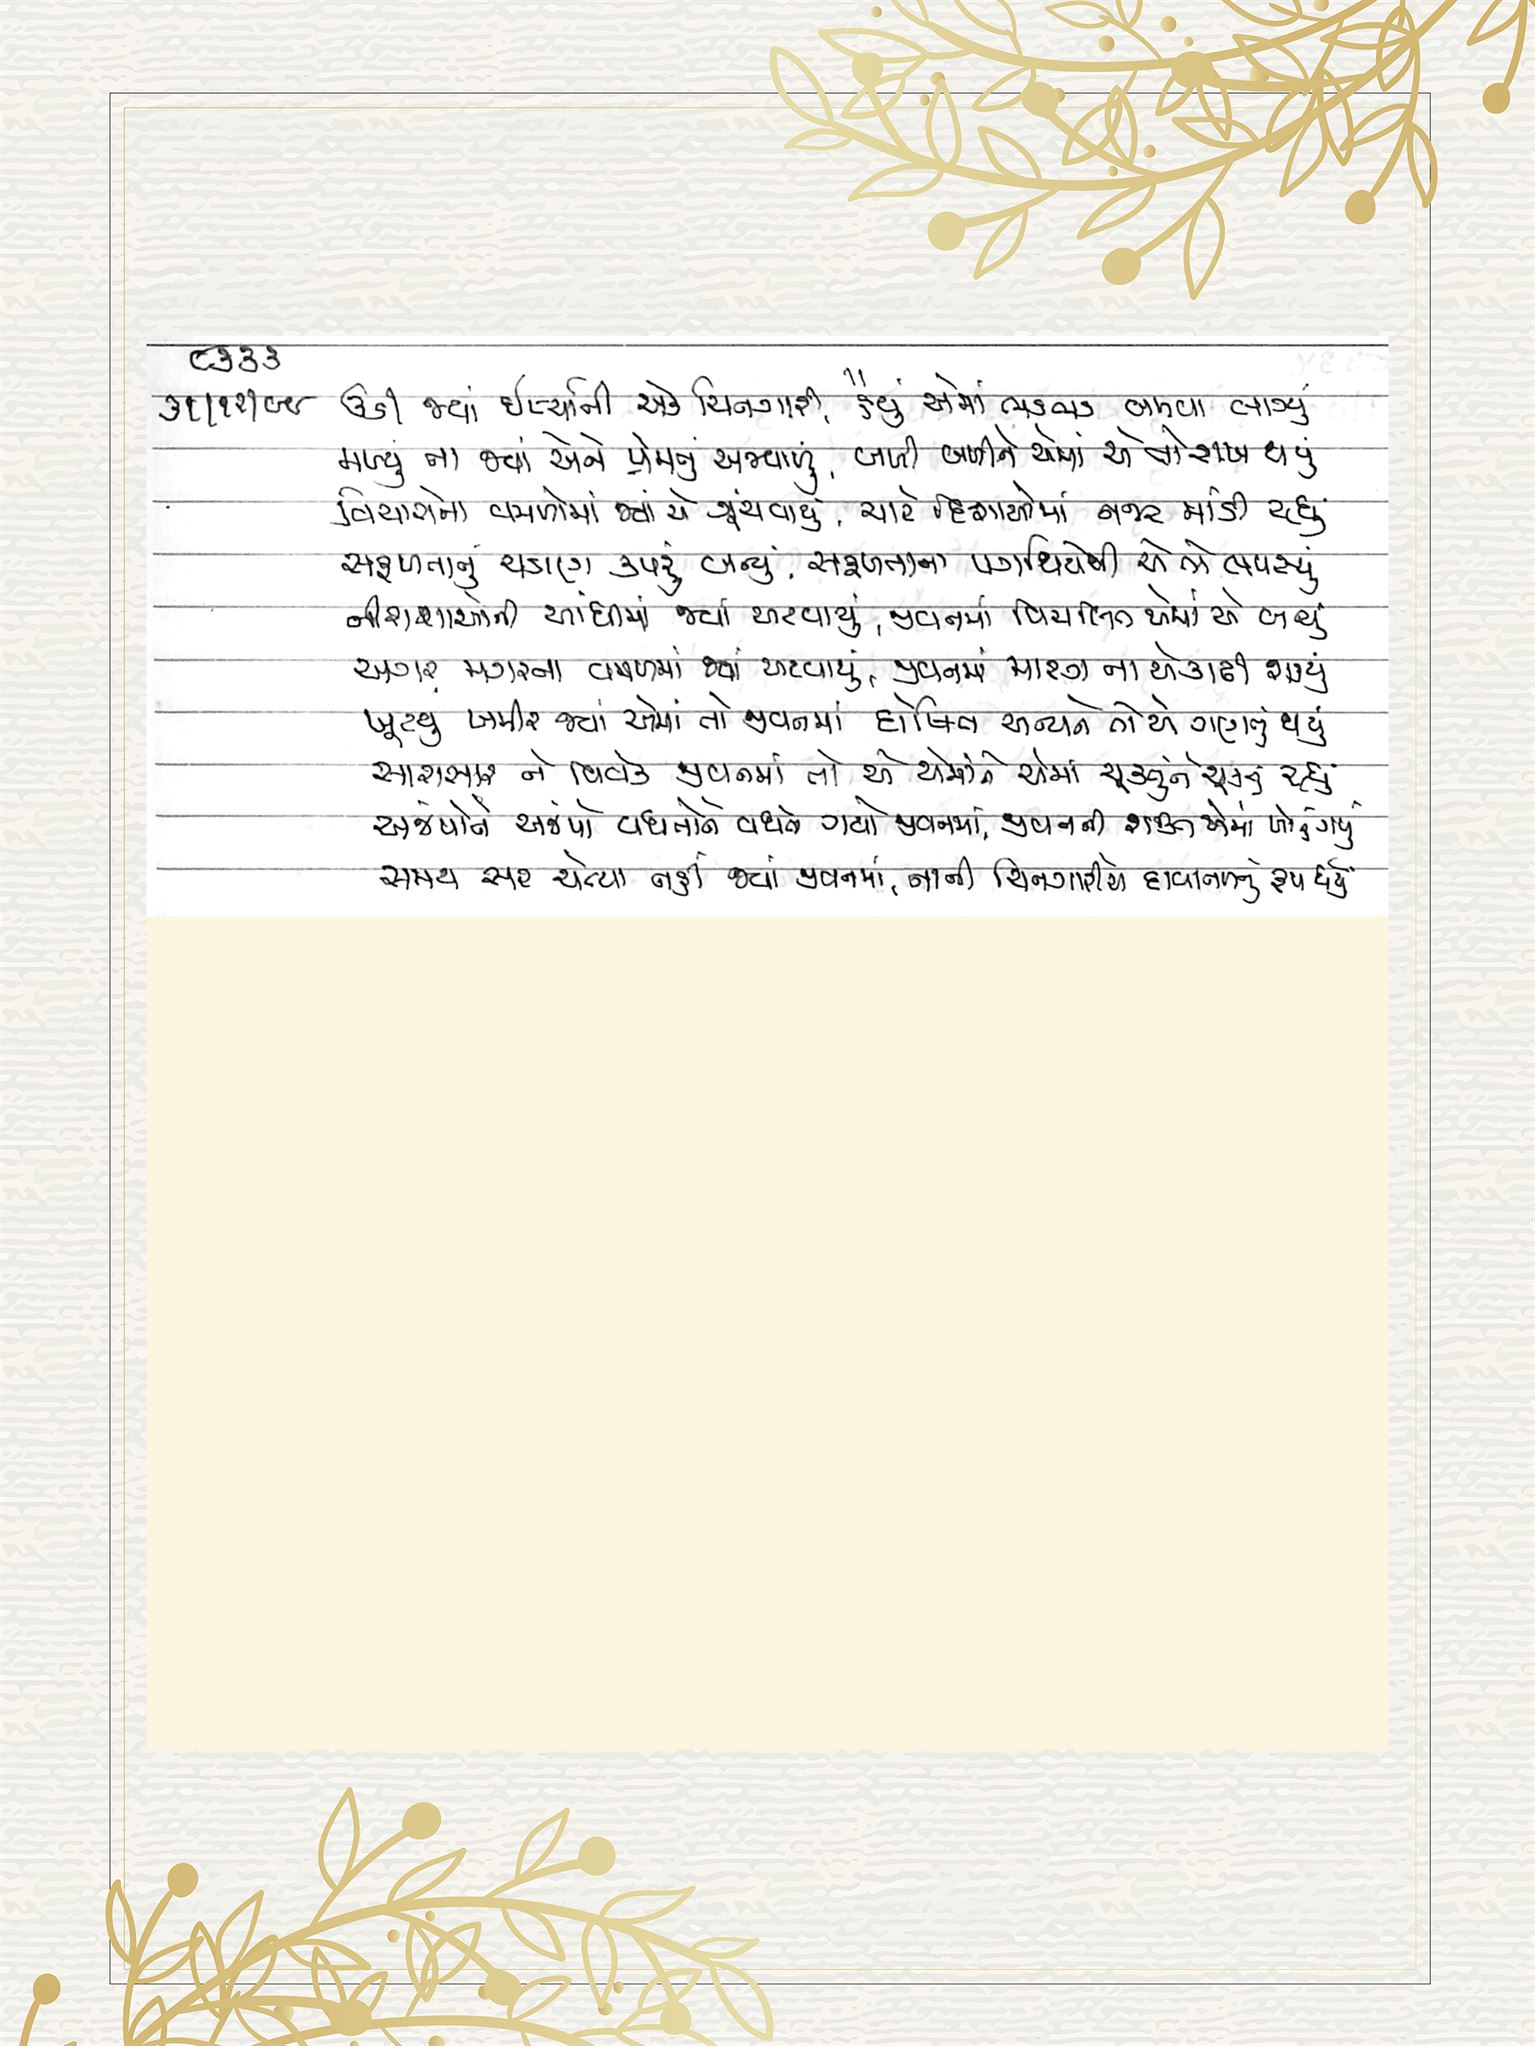 ૮૩૩૩
ઊડી જ્યાં ઈર્ષ્યાની એક ચિનગારી, હૈયું એમાં ભડભડ બળવા લાગ્યું
મળ્યું ના જ્યાં એને પ્રેમનું અજવાળું, બળી બળીને એમાં એ તો રાખ થયું
વિચારોના વમળોમાં જ્યાં એ ગૂંચવાયું, ચારે દિશાઓમાં નજર માંડી રહ્યું
સફળતાનું ચડાણ કપરું બન્યું, સફળતાના પગથિયેથી એ તો લપસ્યું
નીરાશાઓની આંધીમાં જ્યાં અટવાયું, જીવનમાં વિચલિત એમાં એ બન્યું
અગર મગરના વમળમાં જ્યાં અટવાયું, જીવનમાં મારગ ના એ કાઢી શક્યું
ખૂટયુ ખમીર જ્યાં એમાં તો જીવનમાં દોષિત અન્યને તો એ ગણતું થયું
સારાસાર ને વિવેક જીવનમાં તો એ એમાંને એમાં ચૂકતુંને ચૂકતું રહ્યું
અજંપોને અજંપો વધતોને વધતો ગયો જીવનમાં, જીવનની શક્તિ એમાં ખોતું ગયું
સમય સર ચેત્યા નહીં જ્યાં જીવનમાં, નાની ચિનગારીએ દાવાનળનું રૂપ ધર્યું